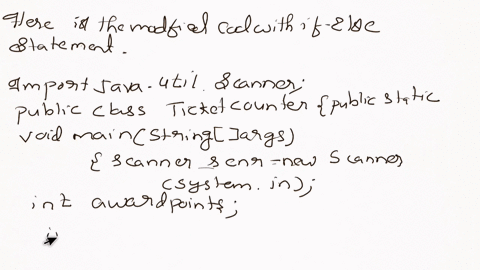 Here is the modfied cod with if-else
Statement.
import java.util.Scanner;
public class Ticketcounter {public static
void main(String[]args)
{ Scanner scnr=new Scanner
(system.in);
int awardpoints;